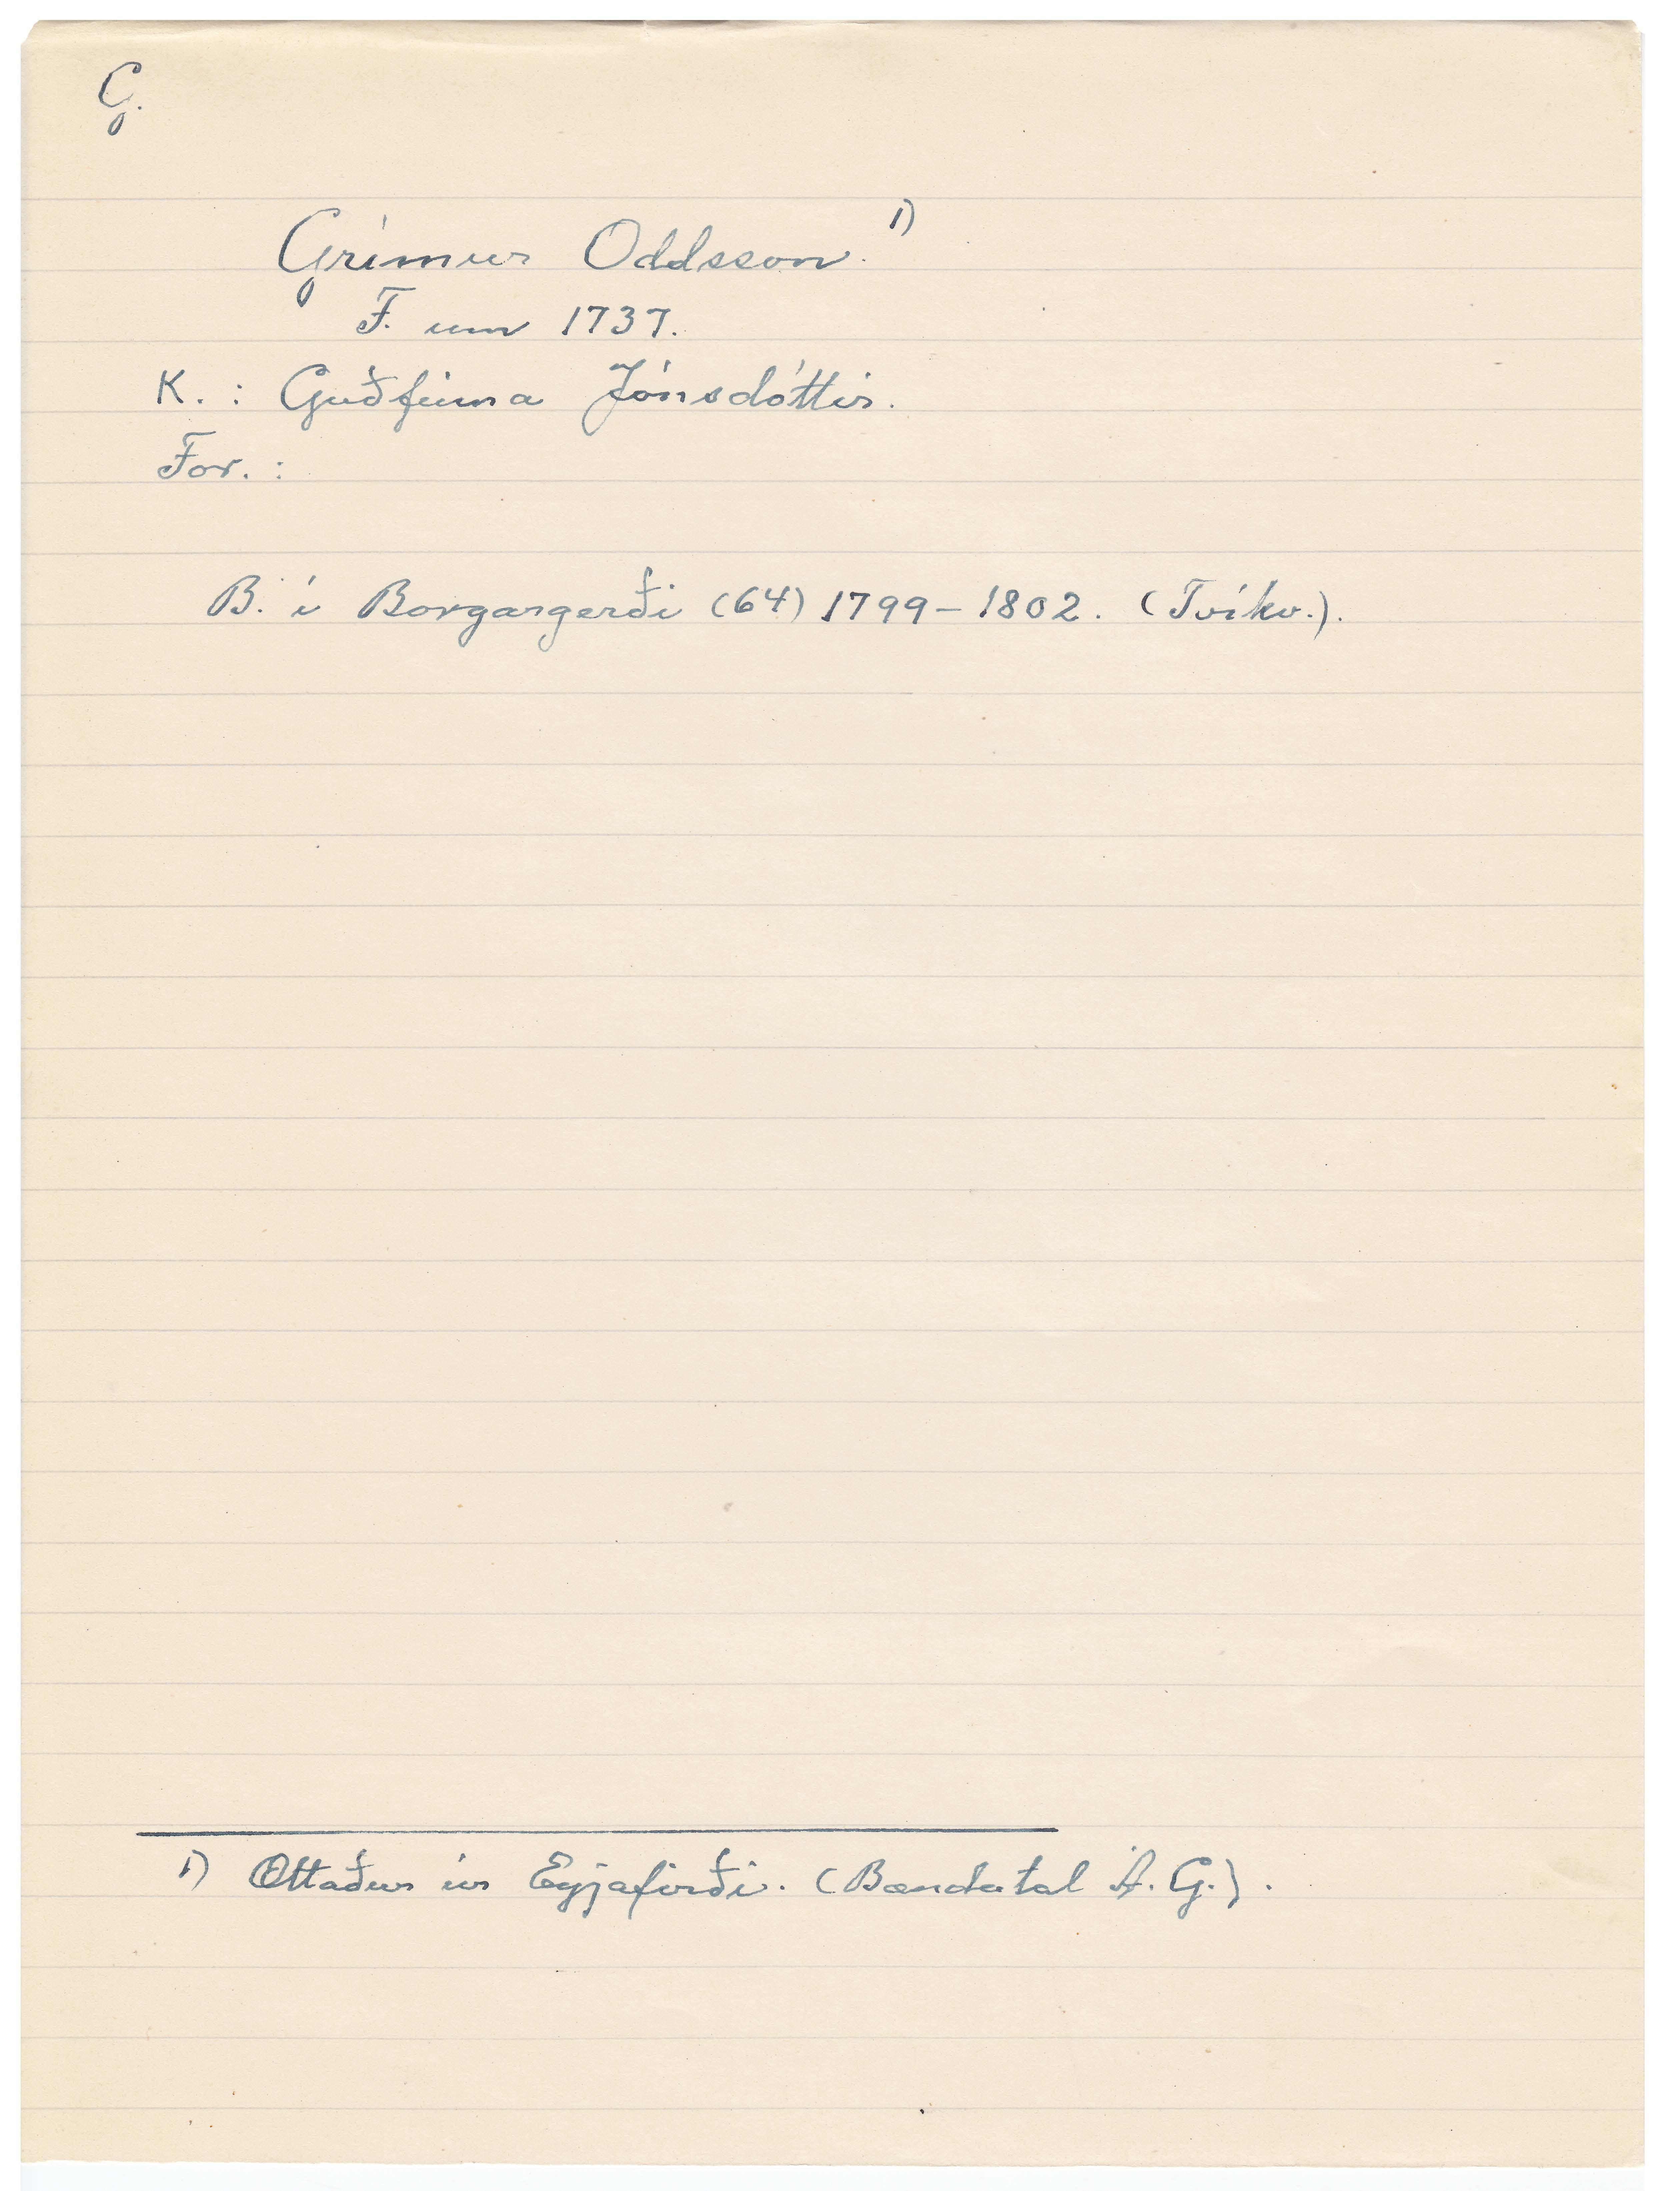 G.
Grímur Oddsson. 1)
F. um 1737.
K. : Guðfinna Jónsdóttir.
For. :
B. í Borgargerði (64) 1799-1802. (Tvíkv.).
1) Ættaður úr Eyjafirði. (Bændatal A. G.).